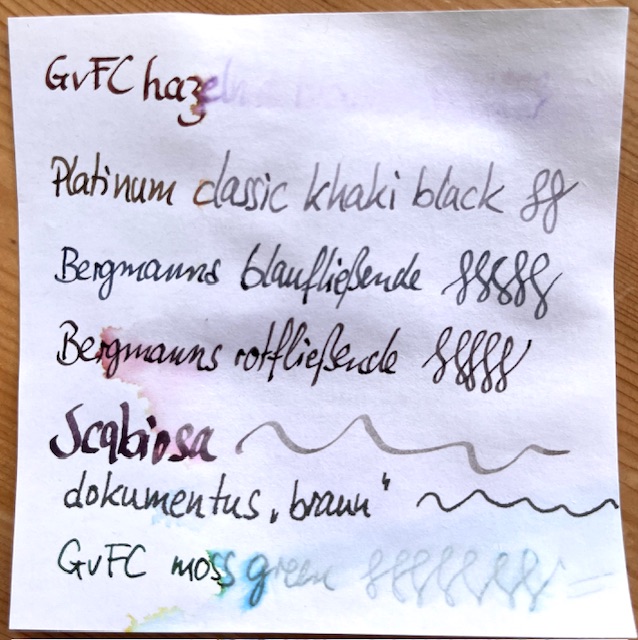 GvFC hazeln
Platinum classic khaki black
Bergmanns blaufließende
Bergmanns rotfließende
Scabiosa
dokumentus „braun“
GvFC moss green